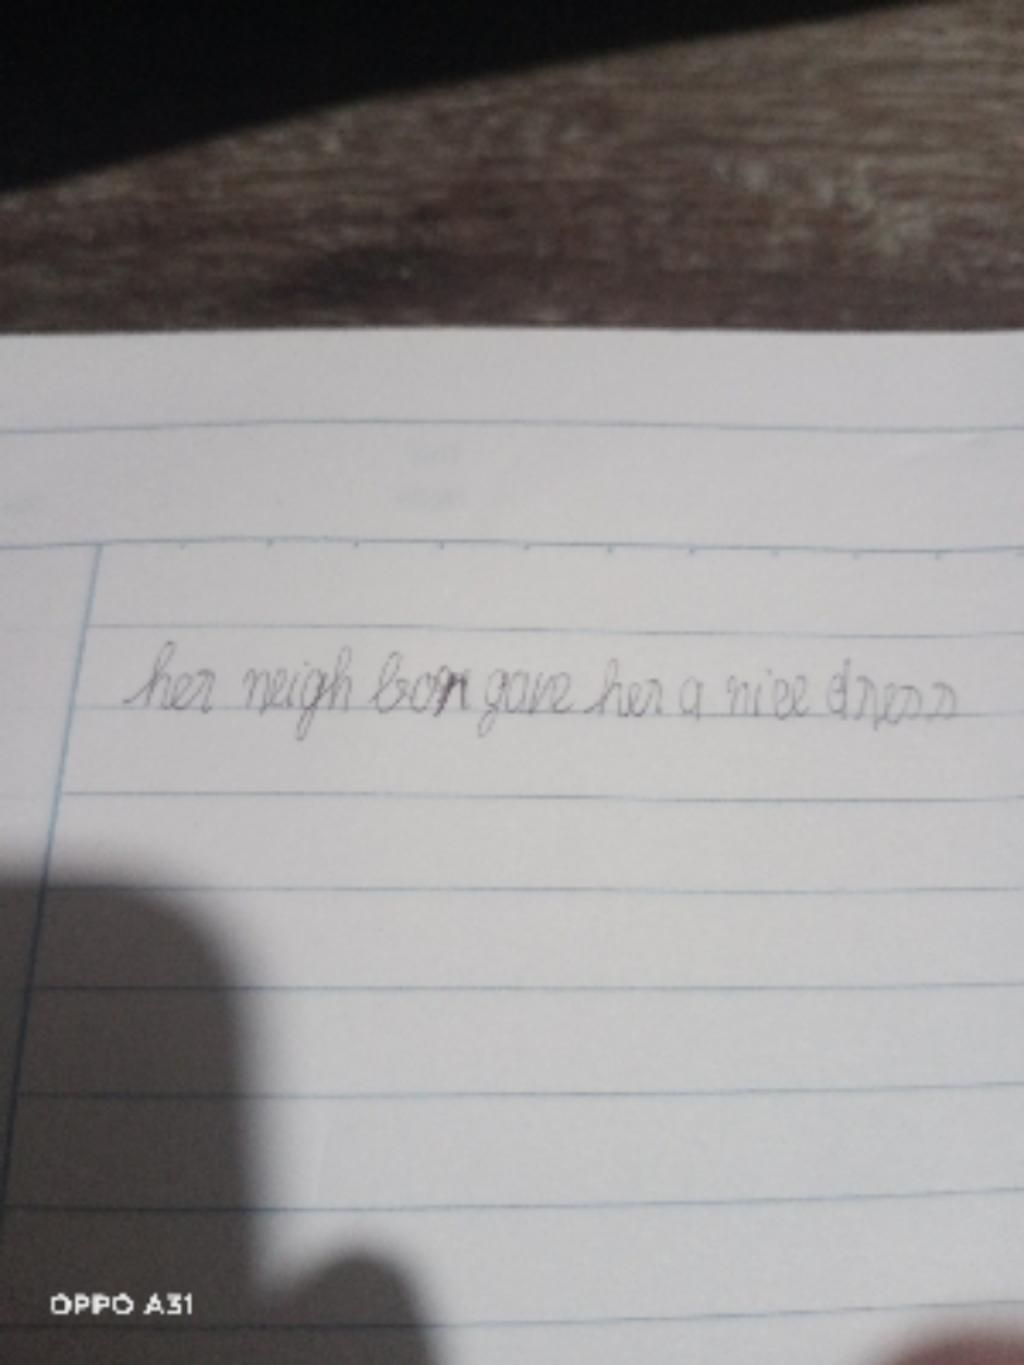 her neigh bor gave her a nice dress
OPPO A31